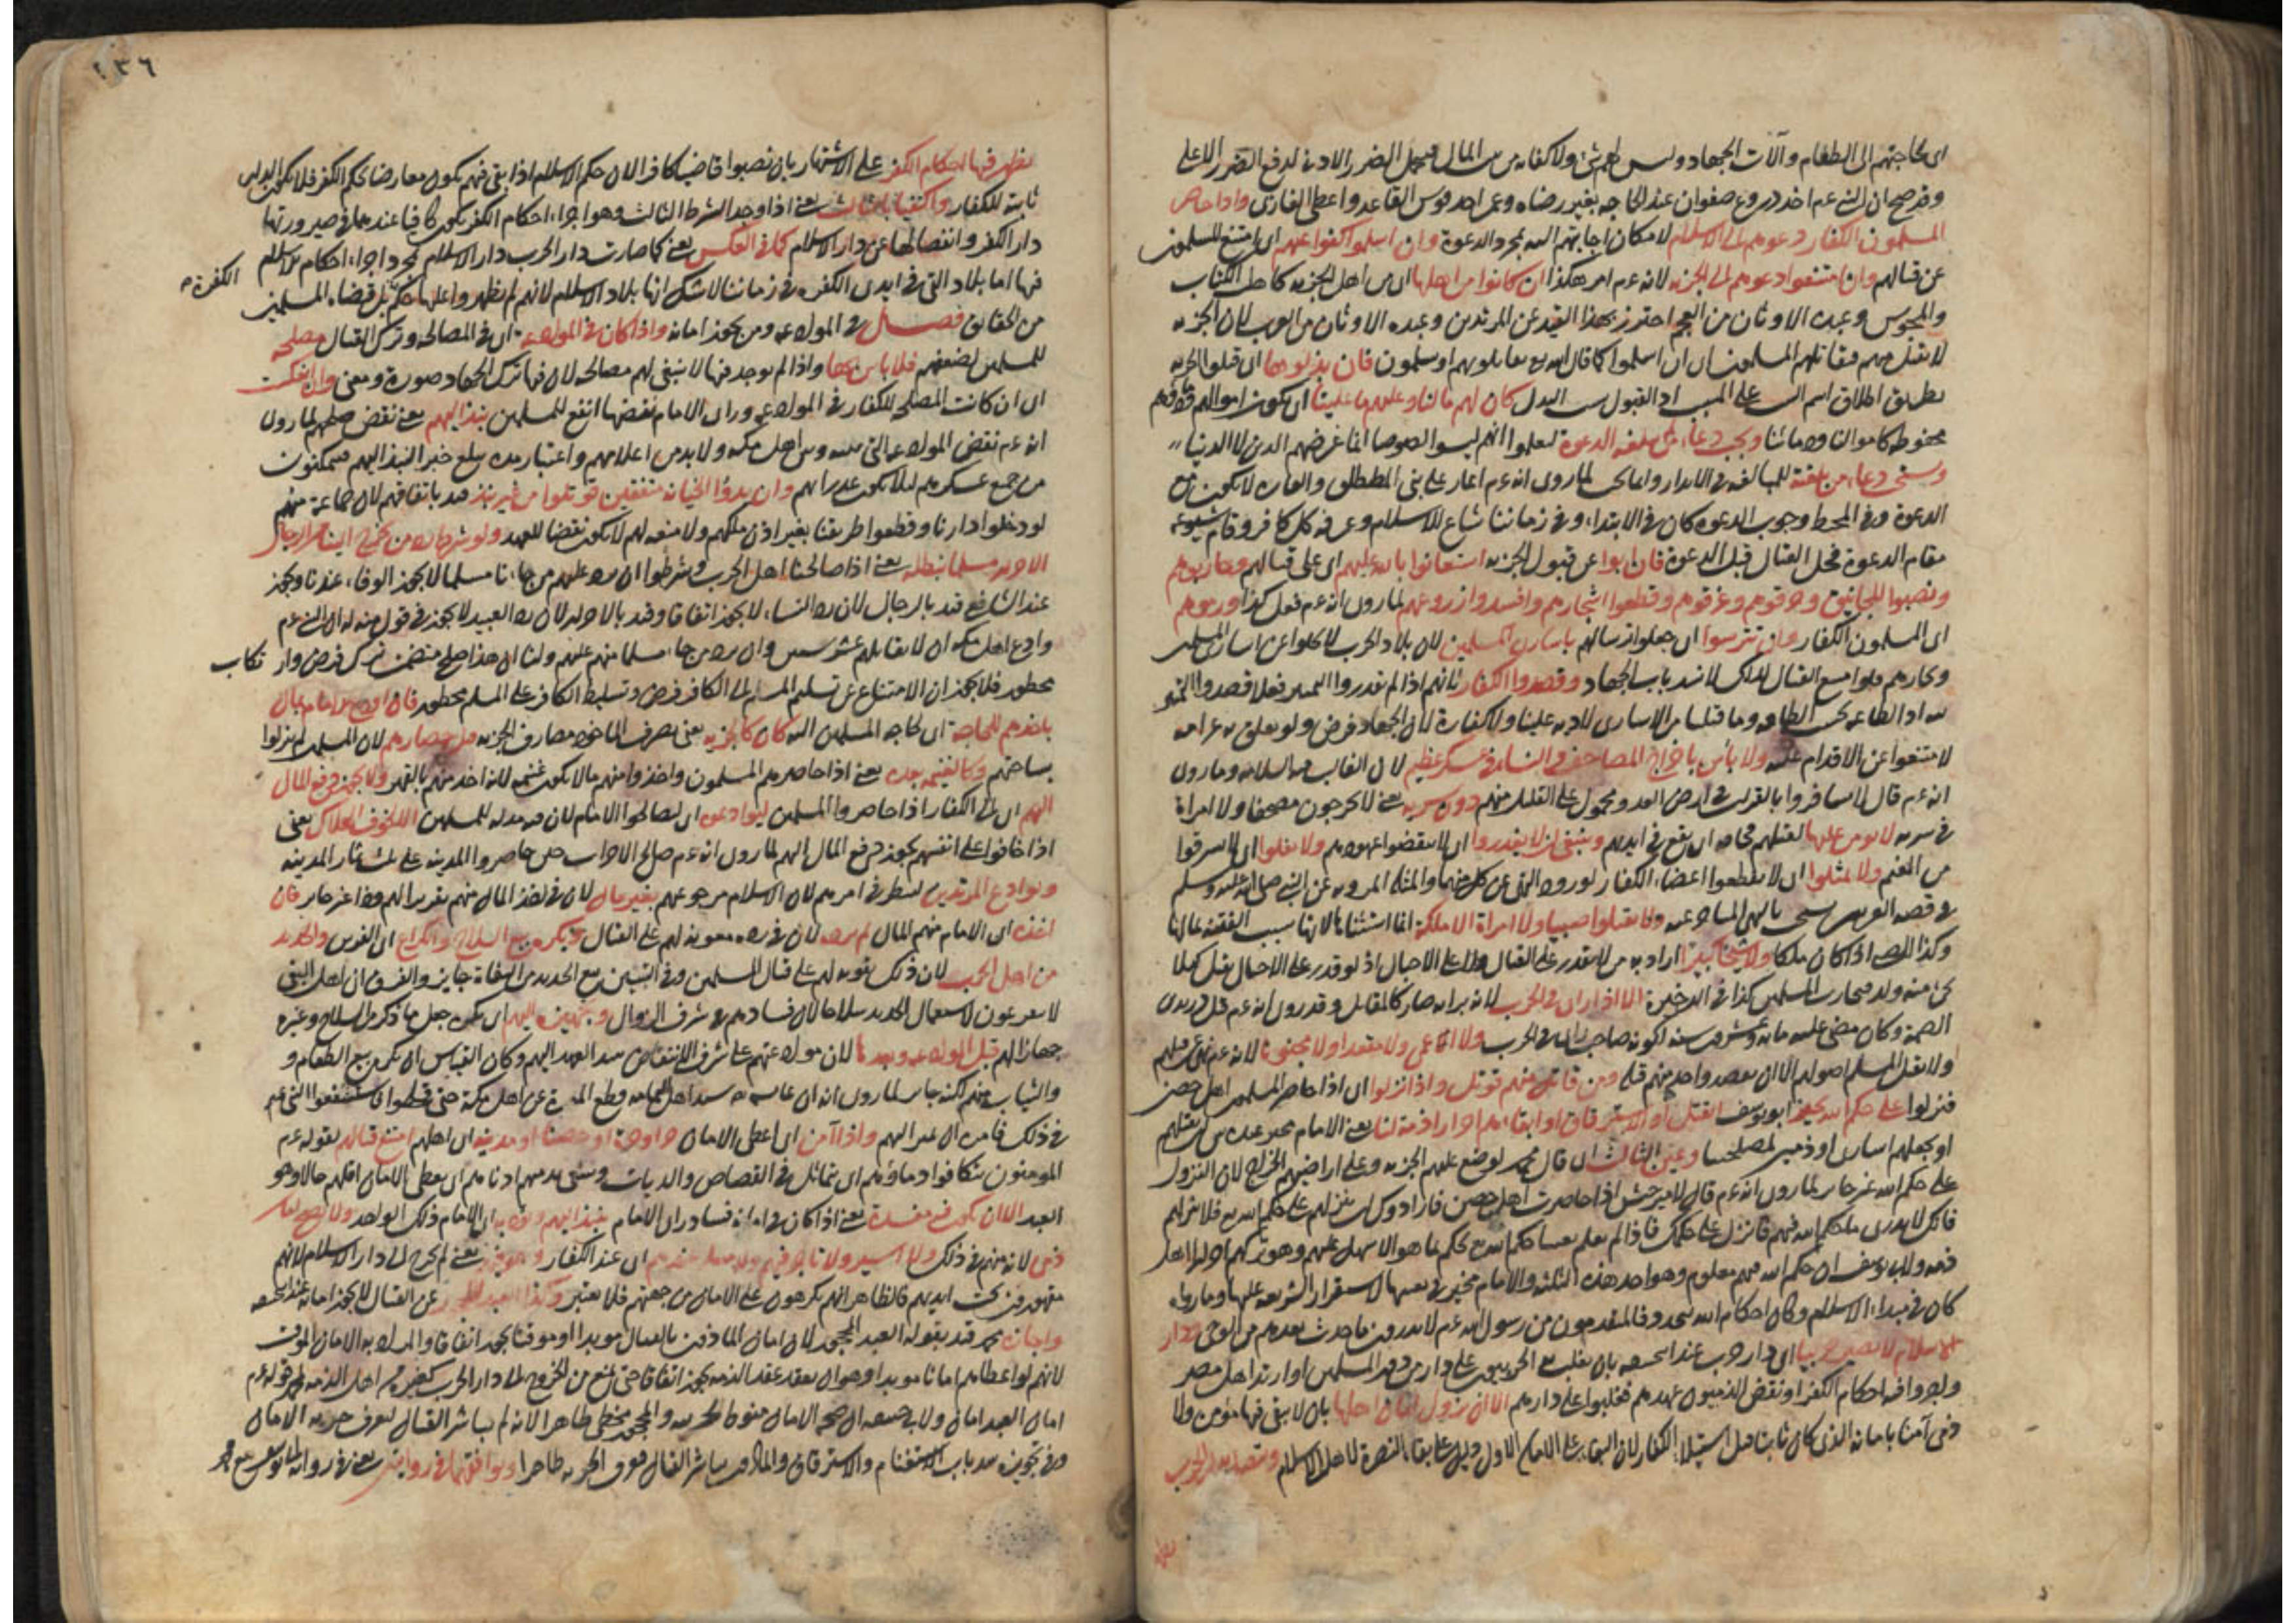 اى لحاجتهم الى الطعام وآلات الجهاد وليس لهم شئ ولا كفاية من بيت المال فيحمل الضرر الادنى لدفع الضرر الاعلى
وقد صح ان النبى عم اخذ دروع صفوان عند الحاجة بغير رضاه وعمر اخذ فرس القاعد واعطى الغازى واذا حاصر
المسلمون الكفار دعوهم الى الاسلام لامكان اجابتهم اليه بمجرد الدعوة وان اسلموا كفوا عنهم اى امتنع المسلمون
عن قتالهم وان امتنعوا دعوهم الى الجزية لانه عم امر هكذا ان كانوا من اهلها اى من اهل الجزية كاهل الكتاب
والمجوس وعبدة الاوثان من العجم احترز بهذا القيد عن المرتدين وعبدة الاوثان من العرب لان الجزية
لا تقبل منهم فقاتلهم المسلمون الى ان اسلموا كما قال الله تع تقاتلونهم او يسلمون فان بذلوها اى قبلوا الجزية
بطريق اطلاق اسم السبب على المسبب اذ القبول سبب البذل كان لهم ما لنا وعليهم ما علينا اى يكون اموالهم ودماؤهم
محفوظة كاموالنا ودمائنا ويجب دعاء من لم يبلغه الدعوة ليعلموا انهم ليسوا لصوصا انما غرضهم الدين لا الدنيا
ويستحب دعاء من بلغته للمبالغة فى الانذار وانما لم يجب لما روى انه عم اغار على بنى المصطلق والغارة لا تكون مع
الدعوة وفى المحيط وجوب الدعوة كان فى الابتداء وفى زماننا شاع الاسلام وعرفه كل كافر وقام شيوعه
مقام الدعوة فحل القتال قبل الدعوة فان ابوا عن قبول الجزية استعانوا بالله عليهم اى على قتالهم وحاربوهم
ونصبوا المجانيق وحرقوهم وغرقوهم وقطعوا اشجارهم وافسدوا زروعهم لما روى انه عم فعل كذا ورموهم
اى المسلمون الكفار وان تترسوا اى جعلوا ترسا لهم باسارى المسلمين لان بلاد الحرب لا تخلوا عن اسارى المسلمين
وتجارهم فلو امتنع القتال لذلك لانسد باب الجهاد وقصدوا الكفار لانهم اذا لم يقدروا التمييز فعلا قصدوا التمييز
لان الجهاد فرض ولو تعلق به غرامة
لامتنعوا عن الاقدام عليه ولا باس باخراج المصاحف والنساء فى عسكر عظيم لان الغالب فيه السلامة وما روى
انه عم قال لا تسافروا بالقرآن فى ارض العدو محمول على القليل منهم دون سرية يعنى لا يخرجون مصحفا ولا امراة
فى سرية لا يؤمن عليها لقلتهم مخافة ان يقع فى ايديهم وينبغى ان لا يغدروا اى لا ينقضوا عهودهم ولا يغلوا اى لا يسرقوا
من المغنم ولا يمثلوا اى لا يقطعوا اعضاء الكفار لورود النهى عن كل منهما والمثلة المروية عن النبى صلى الله عليه وسلم
فى قصة العرنيين نسخت بالنهى المتاخر عنه ولا يقتلوا صبيا ولا امراة الا ملكة انما استثناها لانها سبب الفتنة بمالها
وكذا الصبى اذا كان ملكا ولا شيخا كبيرا اراد به من لا يقدر على القتال ولا على الاحبال اذ لو قدر على الاحبال يقتل كيلا
يجئ منه ولد فيحارب المسلمين كذا فى الذخيرة الا اذا راى فى الحرب لانه برايه صار كالمقاتل وقد روى انه عم قتل دريد بن
الصمة وكان مضى عليه مائة وعشرون سنة لكونه صاحب راى فى الحرب ولا اعمى ولا مقعدا ولا مجنونا لانه عم نهى عن قتلهم
ولا يقتل المسلم اصولهم الا ان يقصد واحد منهم قتله ومن قاتل منهم قوتل واذا نزلوا اى اذا حاصر المسلمون اهل حصن
فنزلوا على حكم الله يجيز ابو يوسف القتل او الاسترقاق او ابقاءهم احرارا ذمة لنا يعنى الامام مخير عنده بين ان يقتلهم
او يجعلهم اسارى او ذميين لمصلحتنا وعين الثالث اى قال محمد يوضع عليهم الجزية وعلى اراضيهم الخراج لان النزول
على حكم الله غير جائز لما روى انه عم قال لامير جيش اذا حاصرت اهل حصن فارادوك ان تنزلهم على حكم الله فلا تنزلهم
فانك لا تدرى ما حكم الله فيهم فانزل على حكمك فاذا لم نعلم يقينا حكم الله تع نحكم بما هو الاسهل عليهم وهو تركهم احرارا اهل
ذمة ولابى يوسف ان حكم الله فيهم معلوم وهو احد هذه الثلثة والامام مخير فى تعيينها لاستقرار الشريعة عليها وما رواه
كان فى مبداء الاسلام وكان احكام الله تتجدد فالمتقدمون من رسول الله عم لا يدرون ما حدث بعدهم من الوحى ودار
الاسلام لا تصير حربيا اى دار حرب عند ابى حنيفة بان يغلب الحربيون على دار من دور المسلمين او ارتد اهل مصر
واجروا فيه احكام الكفر او نقض الذميون عهدهم فغلبوا على دارهم الا ان يزول امان اهلها بان لا يبقى فيها مؤمن ولا
ذمى آمنا بامانه الذى كان ثابتا قبل استيلاء الكفار لان البقاء على الامان الاول دليل على بقاء النصرة لاهل الاسلام ويتصل بدار الحرب
١٣٦
يظهر فيها احكام الكفر على الاشتهار بان نصبوا قاضيا كافرا لان حكم الاسلام اذا بقى فيهم يكون معارضا لحكم الكفر فلا يكون اليد
ثابتة للكفار واكتفيا بالثالث يعنى اذا وجد الشرط الثالث وهو اجراء احكام الكفر يكون كافيا عندهما فى صيرورتها
دار الكفر وانفصالها عن دار الاسلام كما فى العكس يعنى كما صارت دار الحرب دار الاسلام بمجرد اجراء احكام الاسلام
فيها اما بلاد التى فى ايدى الكفرة فى زماننا لا شك انها بلاد الاسلام لانهم لم يظهروا عليها حكم الكفرة بل قضاة المسلمين
من الحقائق فصل فى الموادعة ومن يجوز امانه واذا كان فى الموادعة اى فى المصالحة وترك القتال مصلحة
للمسلمين لضعفهم فلا باس بها واذا لم يوجد فيها لا ينبغى لهم مصالحة لان فيها ترك الجهاد صورة ومعنى وان انعكست
اى ان كانت المصلحة للكفار فى الموادعة وراى الامام نقضها انفع للمسلمين نبذ اليهم يعنى نقض صلحهم لما روى
انه عم نقض الموادعة التى بينه وبين اهل مكة ولا بد من اعلامهم واعتبار مدة يبلغ خبر النبذ اليهم فيتمكنون
من جمع عسكرهم لئلا يكون غدرا بهم وان بدؤا الخيانة متفقين قوتلوا من غير نبذ قيد باتفاقهم لان جماعة منهم
لو دخلوا دارنا وقطعوا طريقنا بغير اذن ملكهم ولا منعة لهم لا يكون نقضا للعهد ولو شرط رد من يخرج الينا من الرجال
الاحرار مسلما نبطله يعنى اذا صالحنا اهل الحرب وشرطوا ان يرد عليهم من جاءنا مسلما لا يجوز الوفاء عندنا ويجوز
عند الشافعى قيد بالرجال لان رد النساء لا يجوز اتفاقا وقيد بالاحرار لان رد العبيد لا يجوز فى قول منه له ان النبى عم
وادع اهل مكة ان لا يقاتلهم عشر سنين وان يرد من جاء مسلما منهم عليهم ولنا ان هذا صلح متضمن ترك فرض وارتكاب
محظور فلا يجوز ان الامتناع عن تسليم المسلم الى الكافر فرض وتسليط الكافر على المسلم محظور فان اوقع الامام بمال
ياخذهم للحاجة اى لحاجة المسلمين اليه كان كالجزية يعنى يصرف الماخوذ مصارف الجزية قبل حصارهم لان المسلمين لم ينزلوا
بساحتهم وكالغنيمة بعده يعنى اذا حاصرهم المسلمون واخذوا منهم مالا يكون غنيمة لانه اخذ منهم بالقهر ولا يجوز دفع المال
اليهم اى الى الكفار اذا حاصروا المسلمين ليوادعوه اى ليصالحوا الامام لان فيه مذلة للمسلمين الا لخوف الهلاك يعنى
اذا خافوا على انفسهم يجوز دفع المال اليهم لما روى انه عم صالح الاحزاب حين حاصروا المدينة على ثلث ثمار المدينة
ونوادع المرتدين لينظر فى امرهم لان الاسلام مرجو عنهم بغير مال لان فى اخذ المال منهم تقريرا لهم وذا غير جائز فان
اخذه اى الامام منهم المال لم يرده لان فى رده معونة لهم على القتال ويكره بيع السلاح والكراع اى الفرس والحديد
من اهل الحرب لان ذلك تقوية لهم على قتال المسلمين وفى التبيين بيع الحديد من البغاة جايز والفرق ان اهل البغى
لا يتفرغون لاستعمال الحديد سلاحا لان فسادهم على شرف الزوال وتجهيزه اليهم اى يكره جعل ما ذكر من السلاح وغيره
جهازا لهم قبل الموادعة وبعدها لان موادعتهم على شرف الانتقاض وكان القياس ان يكره بيع الطعام و
فى ذلك واذا آمن اى اعطى الامان حر او حرة او حصنا او مدينة اى اهلهم امتنع قتالهم لقوله عم
المومنون تتكافوا دماؤهم اى تماثل فى القصاص والديات ويسعى بذمتهم ادناهم اى يعطى الامان اقلهم حالا وهو
العبد الا ان يكون فيه مفسدة يعنى اذا كان فى امانه فساد راى الامام نبذ اليهم
ذمى لانه منهم فى ذلك ولا اسير ولا تاجر فيهم ولا مسلم عندهم اى عند الكفار يعنى لم يخرج الى دار الاسلام لانهم
مقهورين تحت ايديهم فالظاهر انهم يكرهون على الامان من جهتهم فلا يعتبر وكذا العبد المحجور عن القتال لا يجوز امانه عند ابى حنيفة
واجازه محمد قيد بقوله العبد المحجور لان امان الماذون بالقتال مؤبدا او موقتا يجوز اتفاقا والمراد به الامان الموقت
لانهم لو اعطاهم امانا مؤبدا وهو ان يعقد عقد الذمة يجوز اتفاقا حتى يمنع من الخروج الى دار الحرب كغيره من اهل الذمة لمحمد قوله عم
امان العبد امان ولابى حنيفة ان صحة الامان منوط والمحجور مخطئ ظاهرا لانه لم يباشر القتال ليعرف الامان
وفى تجويزه سد باب الاستغنام والاسترقاق والماذون مباشر القتال ظاهرا ويوافقهما فى روايتين يعنى فى رواية ابو يوسف مع محمد